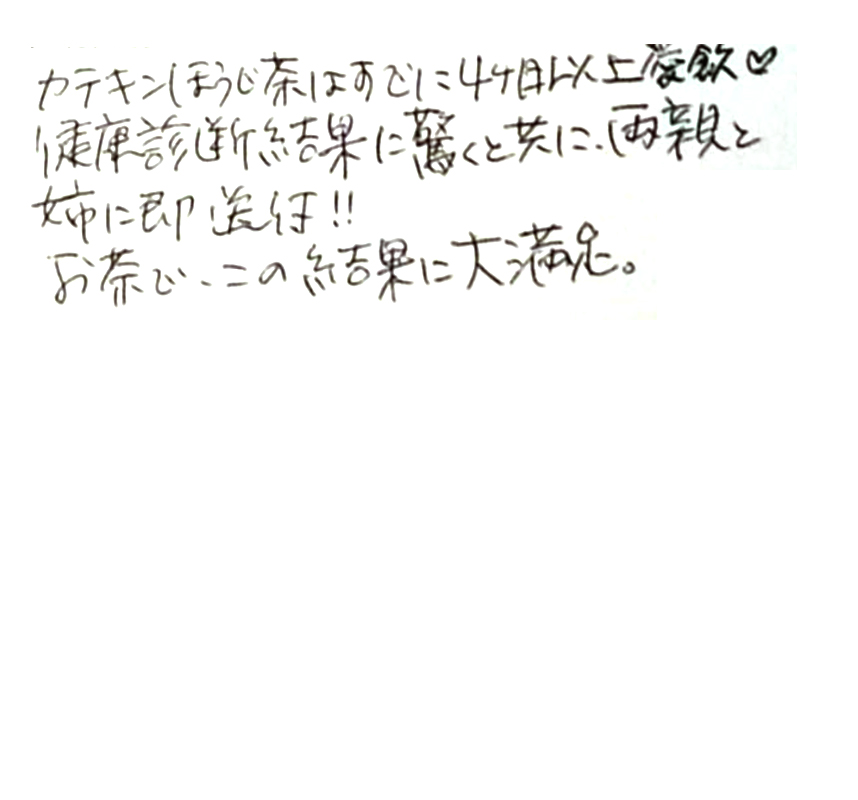 カテキンほうじ茶はすでに4ヶ月以上愛飲♡
健康診断結果に驚くと共に、両親と
姉に即送付!!
お茶で、この結果に大満足。